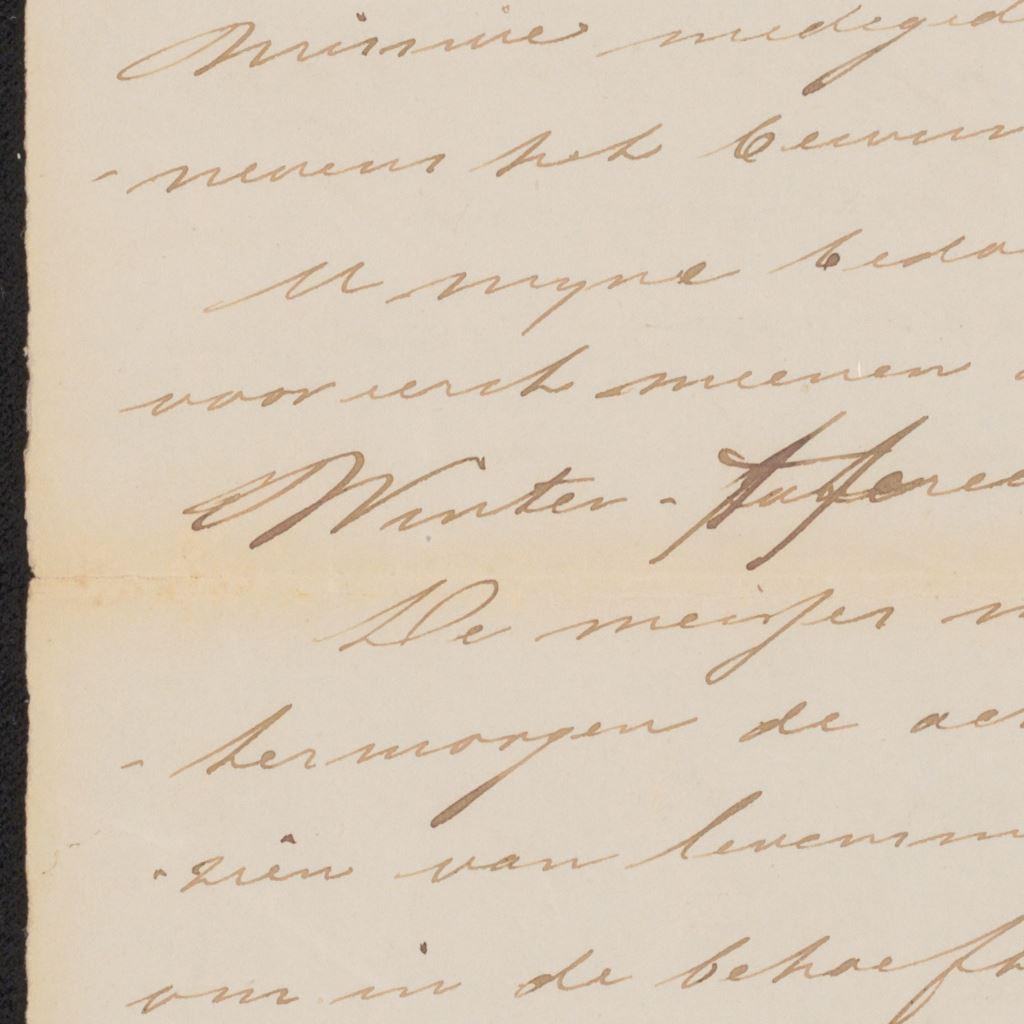 Missive medeged
- nevens het bewus
U myne bedo
voor eerst meenen
Winter - tafere
De meisjes m
- termorgen de
- ziën van levens
om in de behoeft